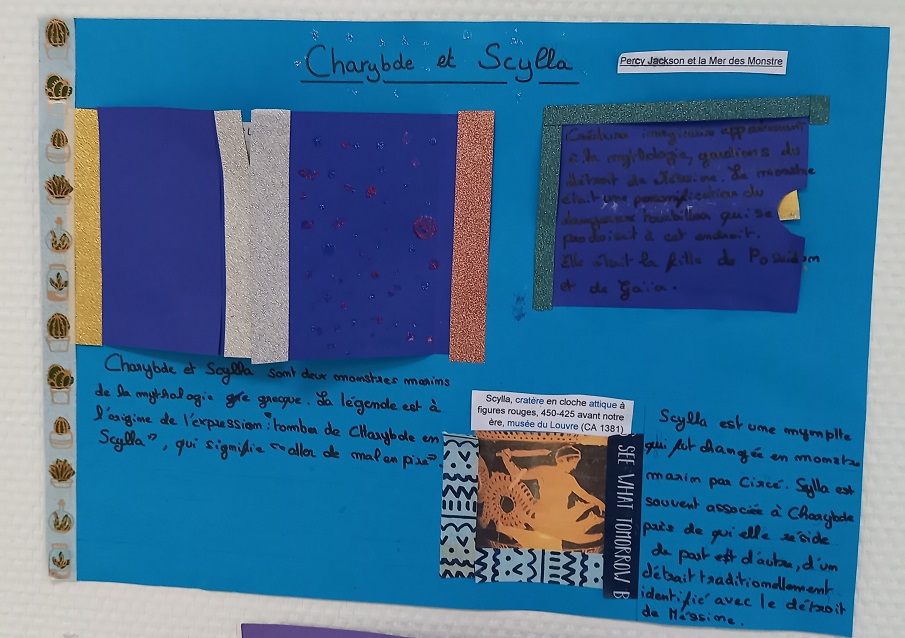 Charybde et Scylla
Percy Jackson et la Mer des Monstre
Créature imaginaire appartenant
à la mythologie, gardiens du
détroit de Messine. Le monstre
était une personnification du
dangereux tourbillon qui se
produisait à cet endroit.
Elle était la fille de Poséidom
et de Gaïa.
Charybde et Scylla sont deux monstres marins
de la mythologie gre grecque. La légende est à
l'origine de l'expression : "tomber de CHarybde en
Scylla", qui signifie "aller de mal en pire".
Scylla, cratère en cloche attique à
figures rouges, 450-425 avant notre
ère, musée du Louvre (CA 1381)
SEE WHAT TOMORROW B
Scylla est une nymphe
qui fut changée en monstre
marin par Circé. Sylla est
souvent associée à Charybde
près de qui elle réside
de part est d'autre, d'un
détroit traditionnellement
identifié avec le détroit
de Messine.